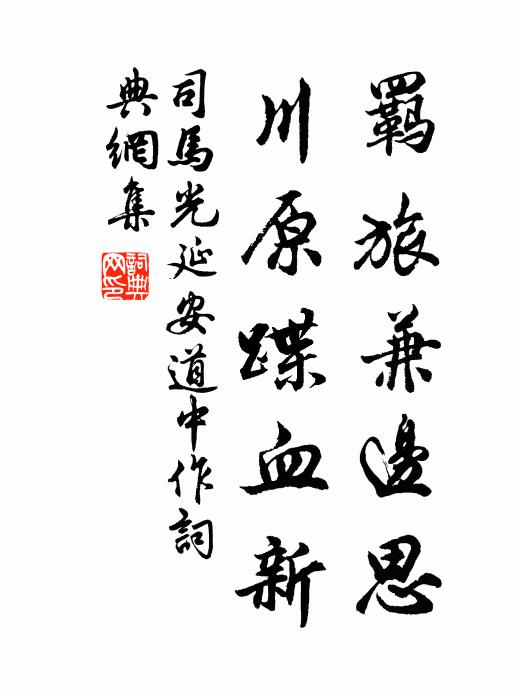 羁旅兼邊思
川原蹀血新
司馬光延安道中作詞
典網集
詞典网印